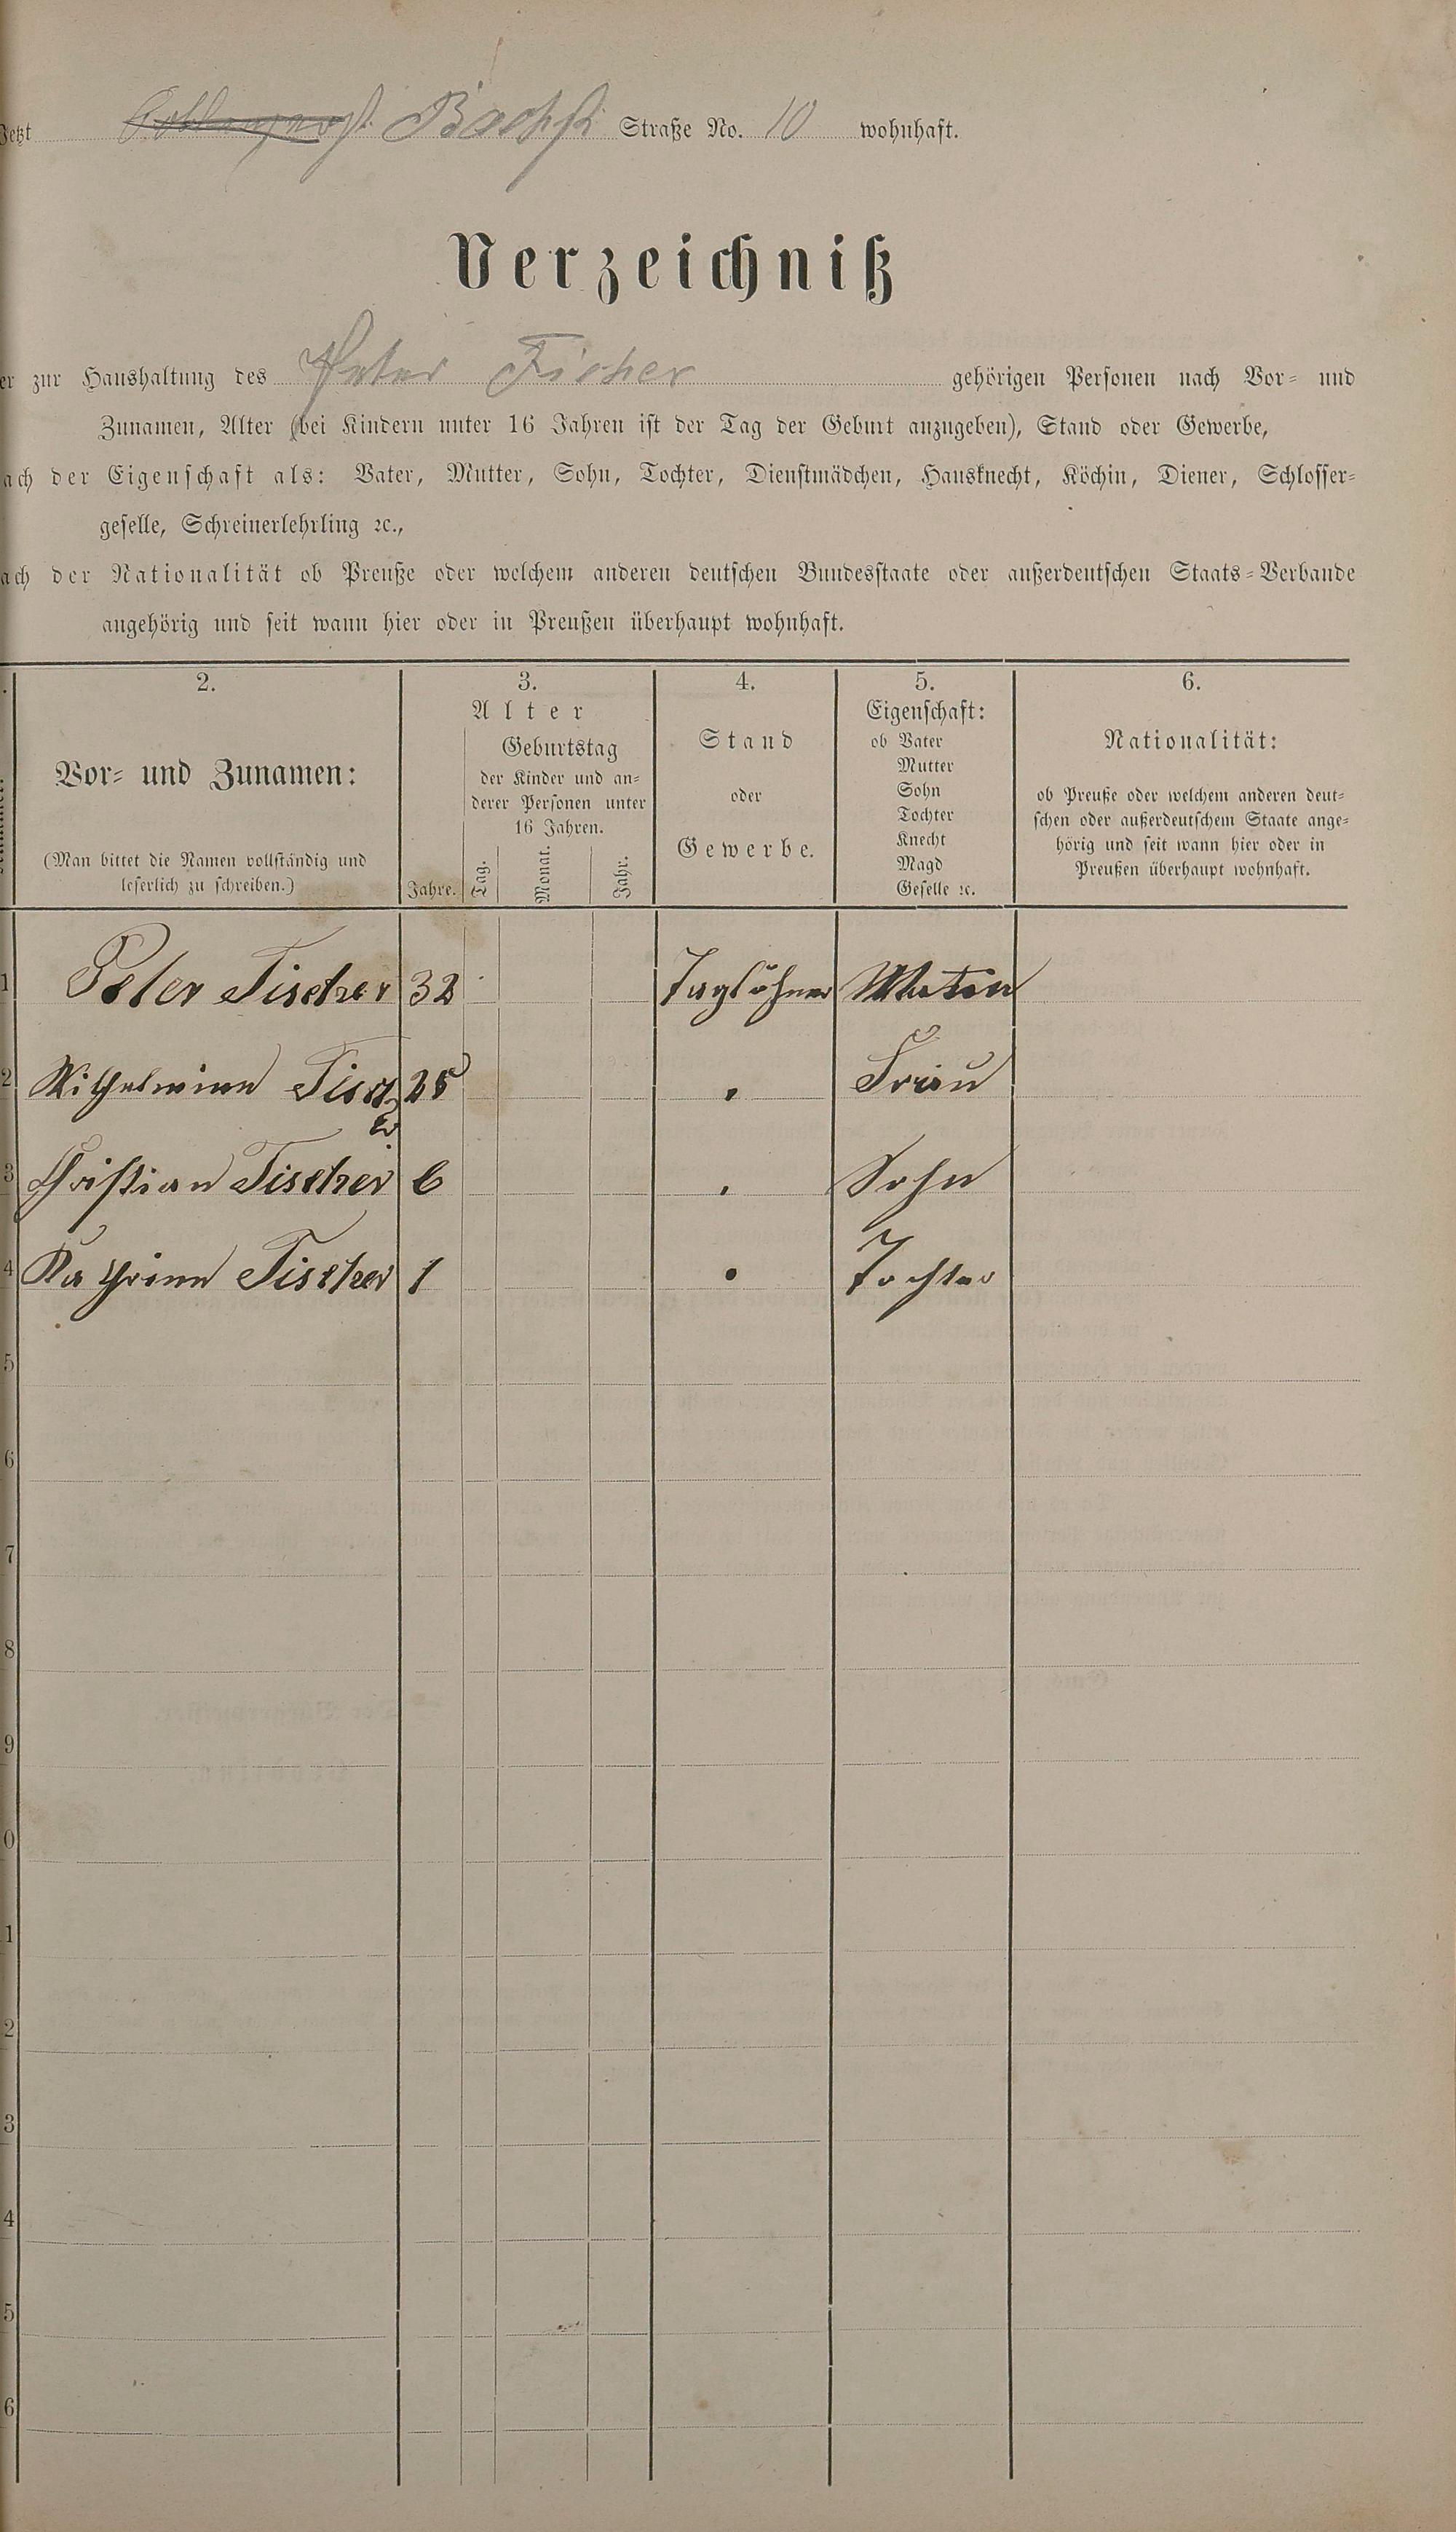 Jetzt Coblenzerst. Bachst. Straße No. 10 wohnhaft.
Verzeichniß
er zur Haushaltung des Peter Fischer gehörigen Personen nach Vor- und
Zunamen, Alter (bei Kindern unter 16 Jahren ist der Tag der Geburt anzugeben), Stand oder Gewerbe,
ach der Eigenschaft als: Vater, Mutter, Sohn, Tochter, Dienstmädchen, Hausknecht, Köchin, Diener, Schlosser-
geselle, Schreinerlehrling ꝛc.,
ach der Nationalität ob Preuße oder welchem anderen deutschen Bundesstaate oder außerdeutschen Staats-Verbande
angehörig und seit wann hier oder in Preußen überhaupt wohnhaft.
2.
Vor- und Zunamen:
(Man bittet die Namen vollständig und
leserlich zu schreiben.)
3.
Alter
Jahre.
Geburtstag
der Kinder und an-
derer Personen unter
16 Jahren.
Tag.
Monat.
Jahr.
4.
Stand
oder
Gewerbe.
5.
Eigenschaft:
ob Vater
Mutter
Sohn
Tochter
Knecht
Magd
Geselle ꝛc.
6.
Nationalität:
ob Preuße oder welchem anderen deut-
schen oder außerdeutschem Staate ange-
hörig und seit wann hier oder in
Preußen überhaupt wohnhaft.
1 Peter Fischer 32 Taglöhner
2 Wilhelmine Fischer 25 " Frau
3 Christian Fischer 6 " Sohn
4 Kathrina Fischer 1 " Tochter
5
6
7
8
9
0
1
2
3
4
5
6